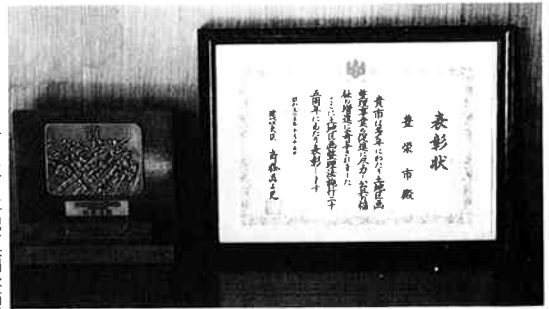 表彰状
豊栄市殿
貴市は多年にわたり土地区画
整理事業の推進に尽力し公共の福
祉の増進に寄与されました
ここに土地区画整理法施行二十
五周年にあたり表彰します
建設大臣 斉藤滋与史